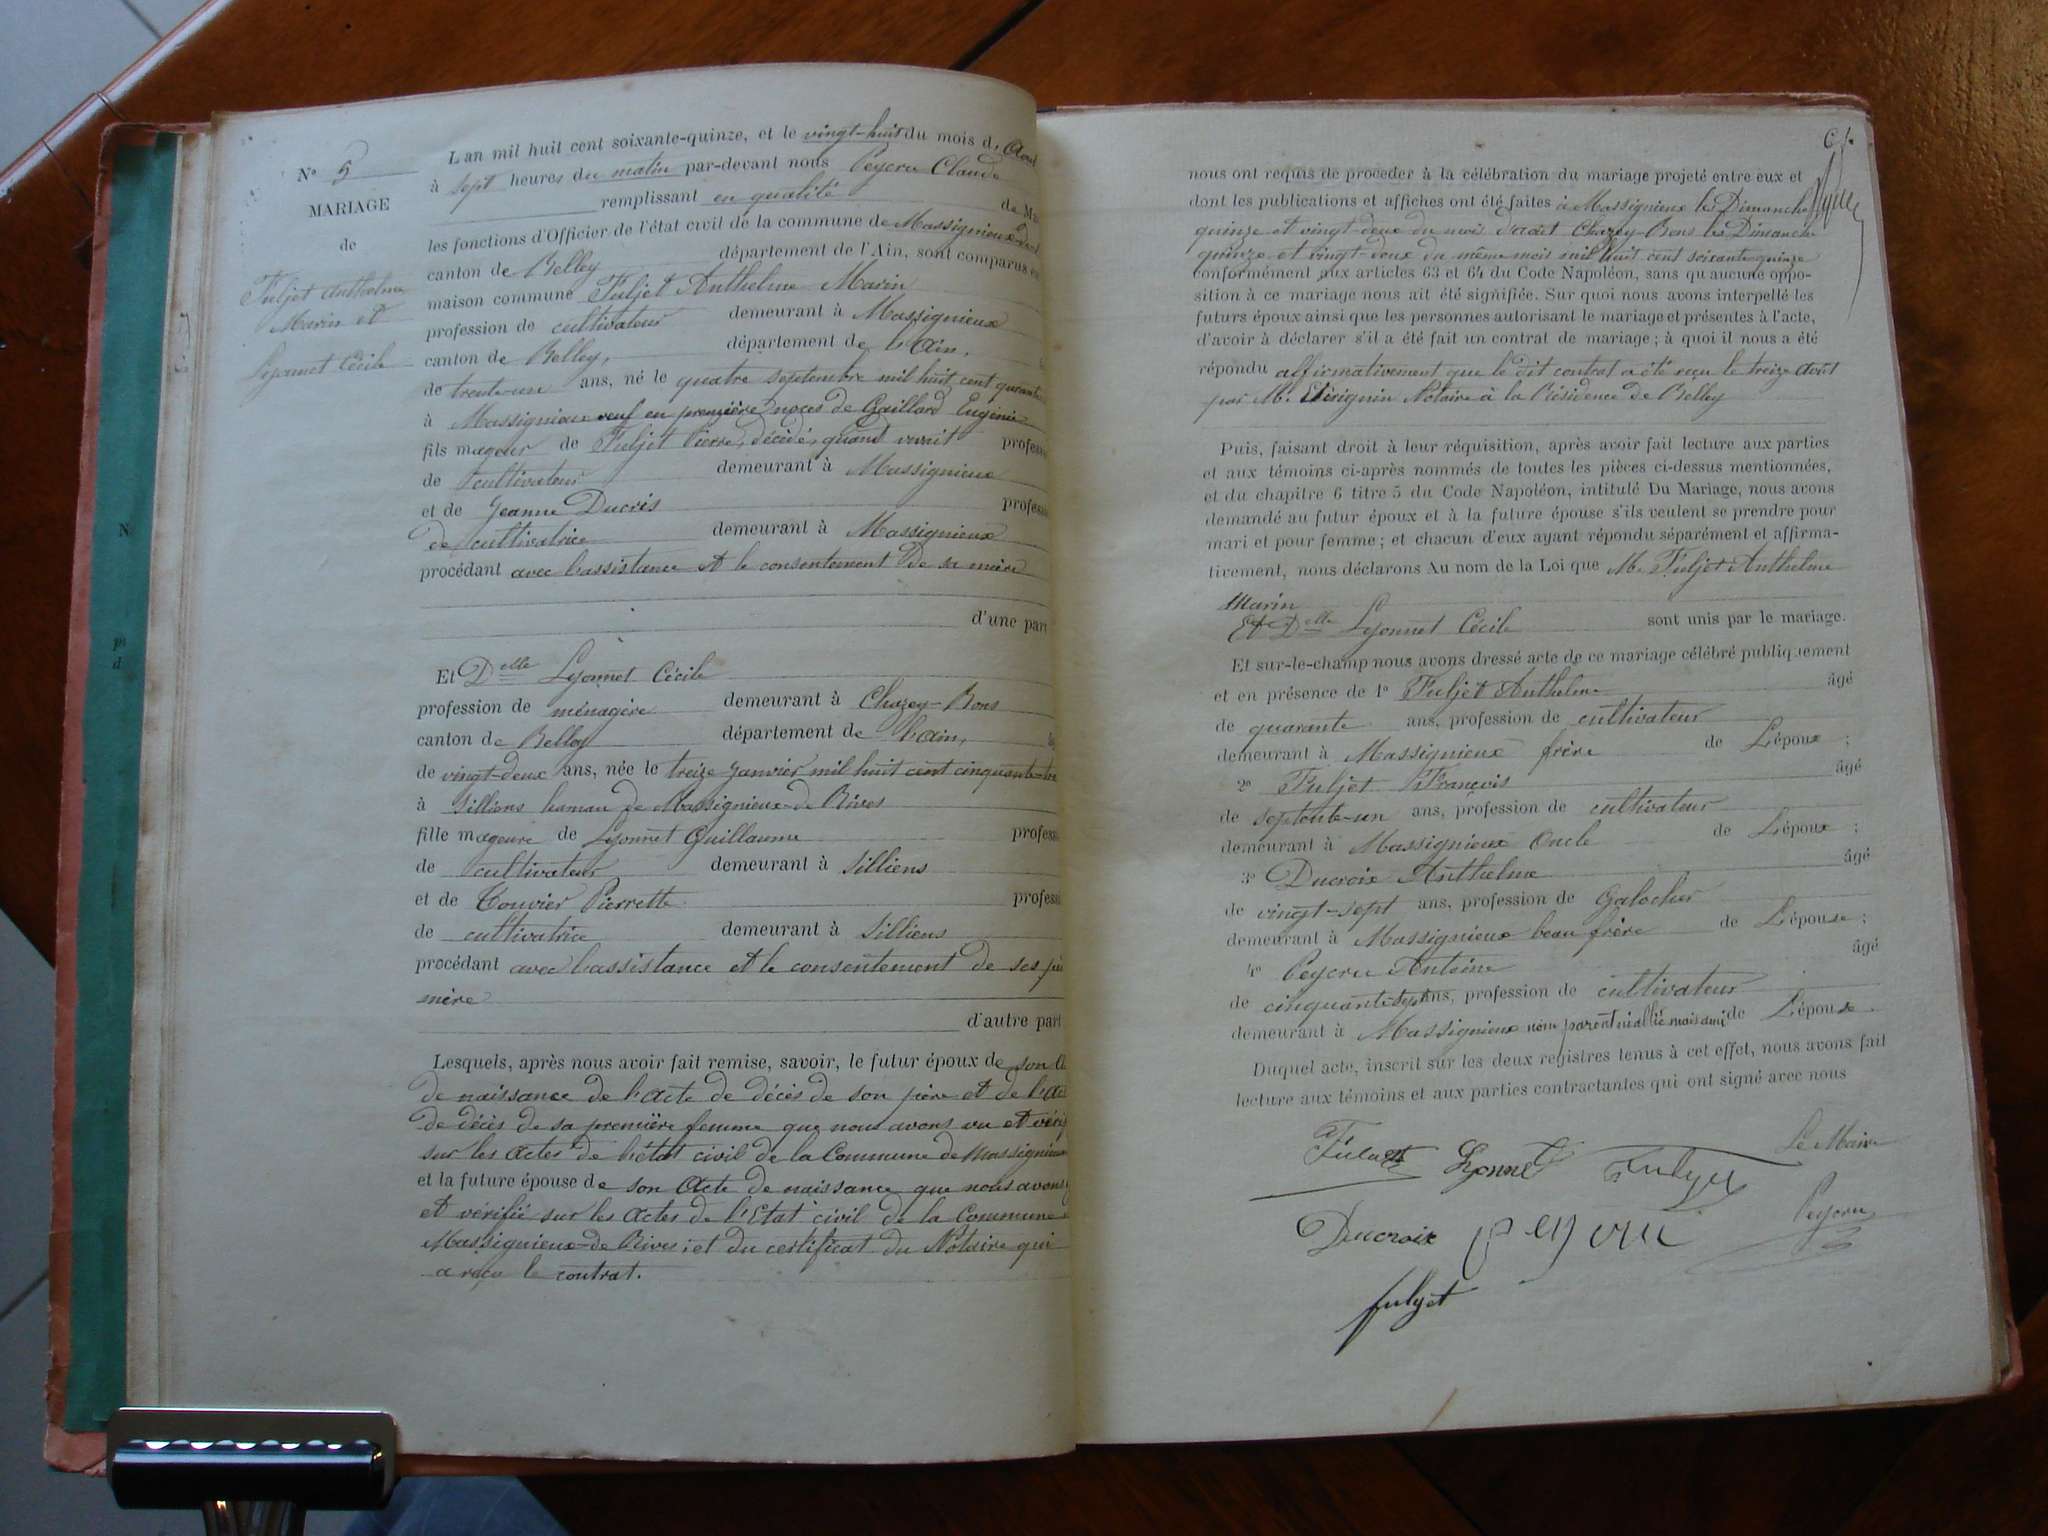 N° 5
MARIAGE
de
Fuljet Anthelme
Marin et
Lyonnet Cécile
L'an mil huit cent soixante-quinze, et le vingt-huit du mois d'Août
à sept heures du matin par-devant nous Peycru Claude
remplissant en qualité de Ma
les fonctions d'Officier de l'état civil de la commune de Massignieux-de-
canton de Belley département de l'Ain, sont comparus en
maison commune Fuljet Anthelme Marin
profession de cultivateur demeurant à Massignieux
canton de Belley, département de l'Ain,
de trente-un ans, né le quatre septembre mil huit cent quarante
à Massignieu veuf en première noces de Gaillard Eugénie
fils mageur de Fuljet Pierre, décidé, quand vivait profess
de cultivateur demeurant à Massignieux
et de Jeanne Ducris profess
de cultivatrice demeurant à Massignieux
procédant avec l'assistance et le consentement de sa mère
d'une part
Et Delle Lyonnet Cécile
profession de ménagère demeurant à Chazey-Bons
canton de Belley département de l'Ain,
de vingt-deux ans, née le treize janvier mil huit cent cinquante-tr
à Silliens hamau de Massignieux-de-Rives
fille mageure de Lyonnet Guillaume profess
de cultivateur demeurant à Silliens
et de Touvier Pierrette profess
de cultivatrice demeurant à Silliens
procédant avec l'assistance et le consentement de ses pè
mère
d'autre part
Lesquels, après nous avoir fait remise, savoir, le futur époux de son
de naissance de l'acte de décès de son père et de l'ac
de décès de sa première femme que nous avons vu et vérif
sur les actes de l'état civil de la Commune de Massignieux
et la future épouse de son acte de naissance que nous avons
et vérifié sur les actes de l'Etat civil de la Commune
Massignieux-de-Rives ; et du certificat du Notaire qui
a reçu le contrat.
nous ont requis de procéder à la célébration du mariage projeté entre eux et
dont les publications et affiches ont été faites à Massignieux les Dimanche
quinze et vingt-deux du mois d'août Chazey-Bons les Dimanche
quinze et vingt-deux du même mois mil huit cent soixante quinze
conformément aux articles 63 et 64 du Code Napoléon, sans qu'aucune oppo-
sition à ce mariage nous ait été signifiée. Sur quoi nous avons interpellé les
futurs époux ainsi que les personnes autorisant le mariage et présentes à l'acte,
d'avoir à déclarer s'il a été fait un contrat de mariage ; à quoi il nous a été
répondu affirmativement que le dit contrat a été reçu le treize août
par M. Notaire à la Résidence de Belley
Puis, faisant droit à leur réquisition, après avoir fait lecture aux parties
et aux témoins ci-après nommés de toutes les pièces ci-dessus mentionnées,
et du chapitre 6 titre 5 du Code Napoléon, intitulé Du Mariage, nous avons
demandé au futur époux et à la future épouse s'ils veulent se prendre pour
mari et pour femme ; et chacun d'eux ayant répondu séparément et affirma-
tivement, nous déclarons Au nom de la Loi que M. Fuljet Anthelme
Marin
Et Delle Lyonnet Cécile sont unis par le mariage.
Et sur-le-champ nous avons dressé acte de ce mariage célébré publiquement
et en présence de 1° Fuljet Anthelme âgé
de quarante ans, profession de cultivateur
demeurant à Massignieux frère de L'époux ;
2° Fuljet François âgé
de septente-un ans, profession de cultivateur
demeurant à Massignieux Oncle de L'époux ;
3° Ducroix Anthelme âgé
de vingt-sept ans, profession de Galocher
demeurant à Massignieux beau frère de L'épouse ;
4° Peycru Antoine âgé
de cinquante-sept ans, profession de cultivateur
demeurant à Massignieux non parent ni allié mais ami de L'épouse.
Duquel acte, inscrit sur les deux registres tenus à cet effet, nous avons fait
lecture aux témoins et aux parties contractantes qui ont signé avec nous
Le Maire
Lyonnet
Ducroix
Peycru
fulyet